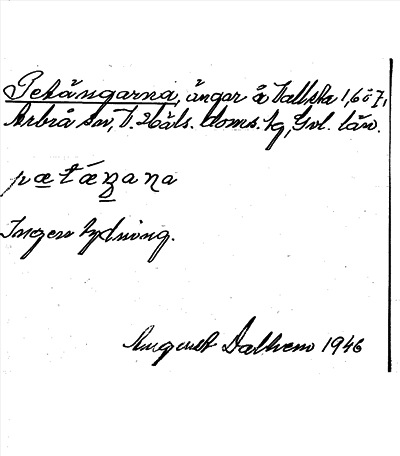 Petängarna, ängar å Vallsta 1, 6 o 7,
Arbrå sn, V. Häls. doms. hg, Gvl. län.
pætáŋana
Ingen tydning.
August Dalhem 1946